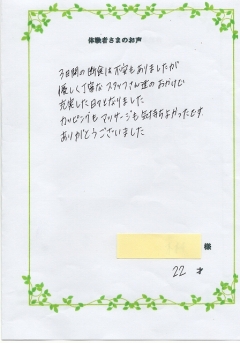 体験者さまのお声
3日間の断食は不安もありましたが
優しく丁寧なスタッフさん達のおかげで
充実した日々となりました
カッピングもマッサージも気持ちよかったです
ありがとうございました
様
22 才